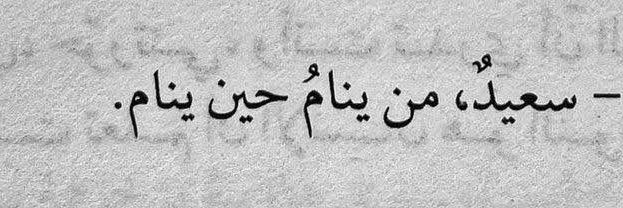 – سعيدٌ، من ينامُ حين ينام.